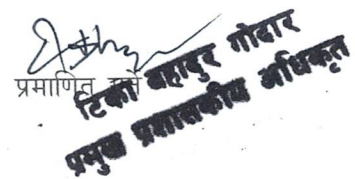 प्रमाणित गर्ने
टिका बहादुर गोदार
प्रमुख प्रशासकीय अधिकृत